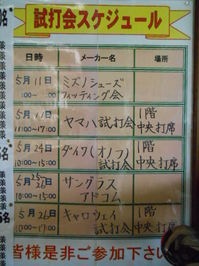 試打会スケジュール
日時 メーカー名 場所
5月11日 ミズノシューズ
10:00~ フィッティング会
ヤマハ試打会 1階
11:00~17:00 中央打席
5月24日 ダイワ(オノフ) 1階
10:00~15:00 試打会 中央打席
5月 サングラス
アドコム
5月26日 キャロウェイ 1階
試打会 中央打席
皆様是非ご参加下さい